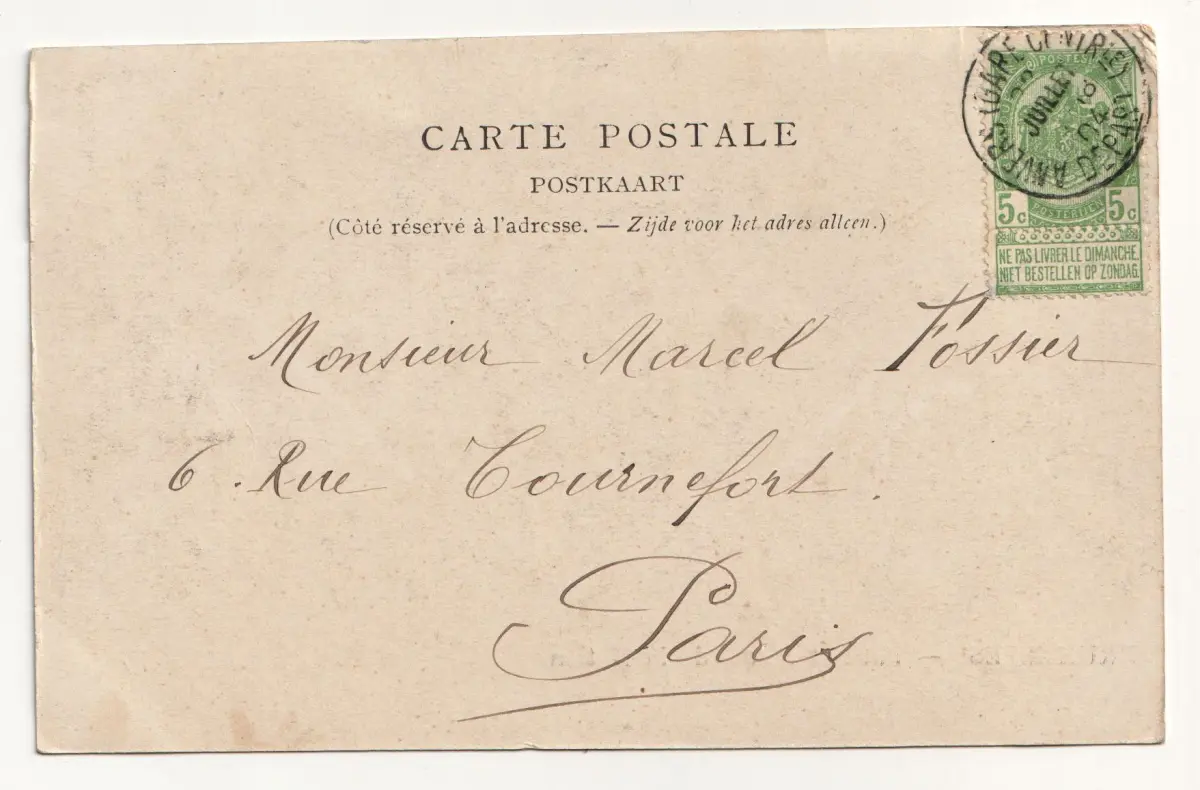 CARTE POSTALE
POSTKAART
(Côté réservé à l'adresse. — Zijde voor het adres alleen.)
ANVERS (GARE CENTRALE)
JUILLET
DÉPART
POSTES
POSTERIJEN
5c 5c
NE PAS LIVRER LE DIMANCHE
NIET BESTELLEN OP ZONDAG.
Monsieur Marcel Fossier
6. Rue Tournefort.
Paris